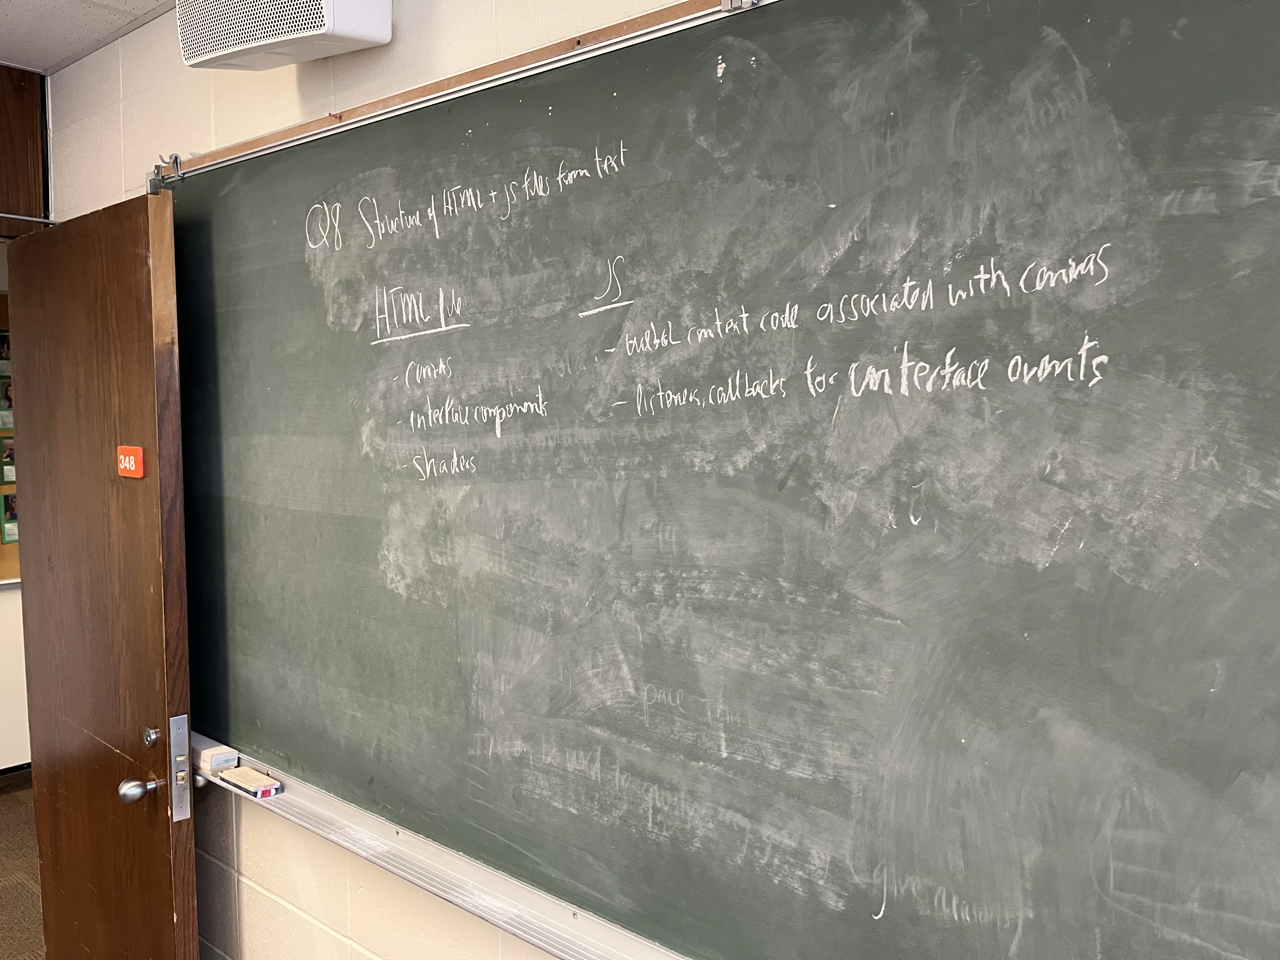 Q8 Structure of HTML + JS files from text
HTML file
- canvas
- interface components
- shaders
JS
- webGL context code associated with canvas
- listeners, callbacks for interface events
348
pace
be used to
give